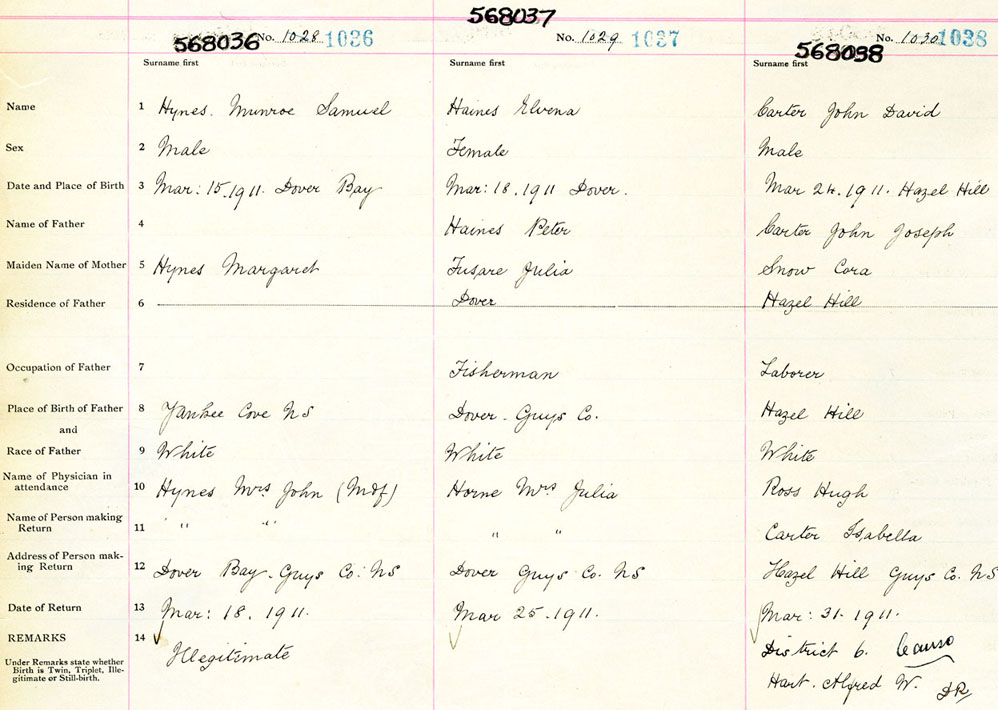 568036 No. 1028 1036
568037 No. 1029 1037
568038 No. 1030 1038
Surname first Surname first Surname first
Name 1 Hynes. Munroe Samuel Haines Elvena Carter John David
Sex 2 Male Female Male
Date and Place of Birth 3 Mar: 15.1911. Dover Bay Mar: 18.1911 Dover. Mar 24.1911. Hazel Hill
Name of Father 4 Haines Peter Carter John Joseph
Maiden Name of Mother 5 Hynes Margaret Fusare Julia Snow Cora
Residence of Father 6 Dover Hazel Hill
Occupation of Father 7 Fisherman Laborer
Place of Birth of Father 8 Yankee Cove NS Dover. Guys Co. Hazel Hill
and
Race of Father 9 White White White
Name of Physician in
attendance 10 Hynes Mrs John (Mdf) Horne Mrs Julia Ross Hugh
Name of Person making
Return 11 " " " " Carter Isabella
Address of Person mak-
ing Return 12 Dover Bay. Guys Co. NS Dover Guys Co. NS Hazel Hill Guys Co. NS
Date of Return 13 Mar: 18. 1911. Mar 25.1911. Mar: 31.1911.
REMARKS 14 Illegitimate District 6. Canso
Under Remarks state whether
Birth is Twin, Triplet, Ille-
gitimate or Still-birth.
Hart. Alfred W. DR